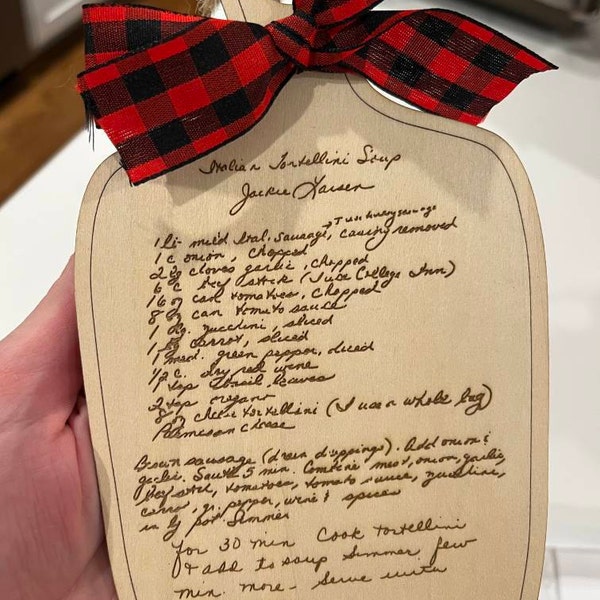 Italian Tortellini Soup
Jackie Larsen
1 lb mild Ital. Sausage, → I use turkey sausage casing removed
1 c onion, chopped
2 lg cloves garlic, chopped
6 c. stock (I use College Inn)
16 oz can tomatoes, chopped
8 oz can tomato sauce
1 lg. zucchini, sliced
1 lg carrot, sliced
1 med. green pepper, diced
1/2 c. dry red wine
tsp basil leaves
2 tsp oregano
8 oz cheese tortellini (I use a whole bag)
Parmesan cheese
Brown sausage (drain drippings). Add onion &
garlic. Sauté 5 min. Combine meat, onion, garlic,
stock, tomatoes, tomato sauce, zucchini,
carrot, gr. pepper, wine & spices
in lg pot Simmer
for 30 min Cook tortellini
& add to soup simmer few
min. more - serve with